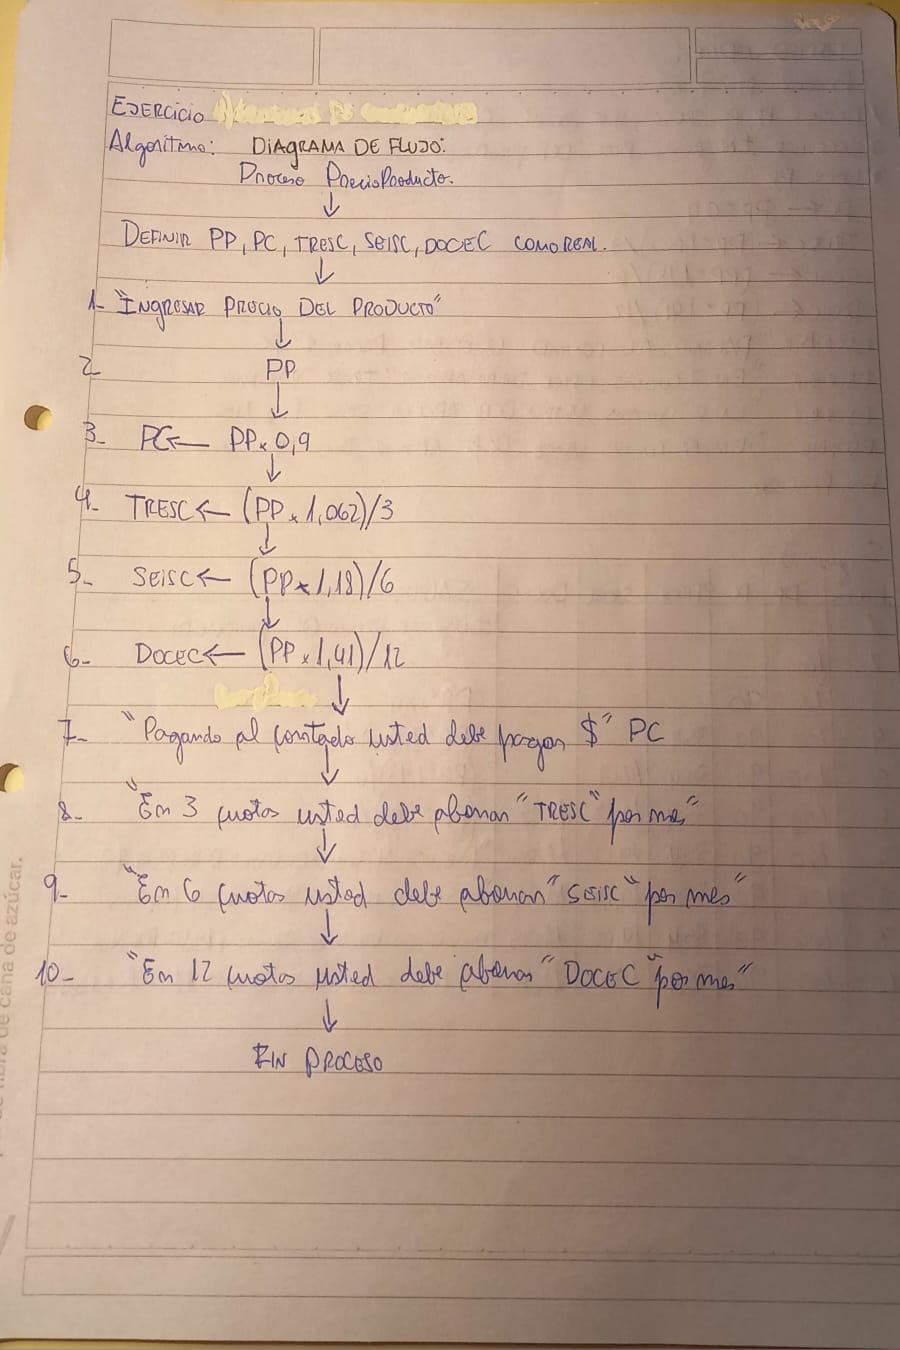 EJERCICIO
Algoritmo: DIAGRAMA DE FLUJO:
Proceso PrecioProducto.
↓
DEFINIR PP, PC, TRESC, SEISC, DOCEC COMO REAL.
↓
1- "INGRESAR PRECIO DEL PRODUCTO"
↓
2 PP
↓
3- PC← PP x 0,9
↓
4- TRESC← (PP x 1,062)/3
↓
5- SEISC← (PP x 1,18)/6
↓
6- DOCEC← (PP x 1,41)/12
↓
7- "Pagando al contado usted debe pagar $" PC
↓
8- "En 3 cuotas usted debe abonar" TRESC "por mes"
↓
9- "En 6 cuotas usted debe abonar" SEISC "por mes"
↓
10- "En 12 cuotas usted debe abonar" DOCEC "por mes"
↓
FIN PROCESO
de caña de azúcar.